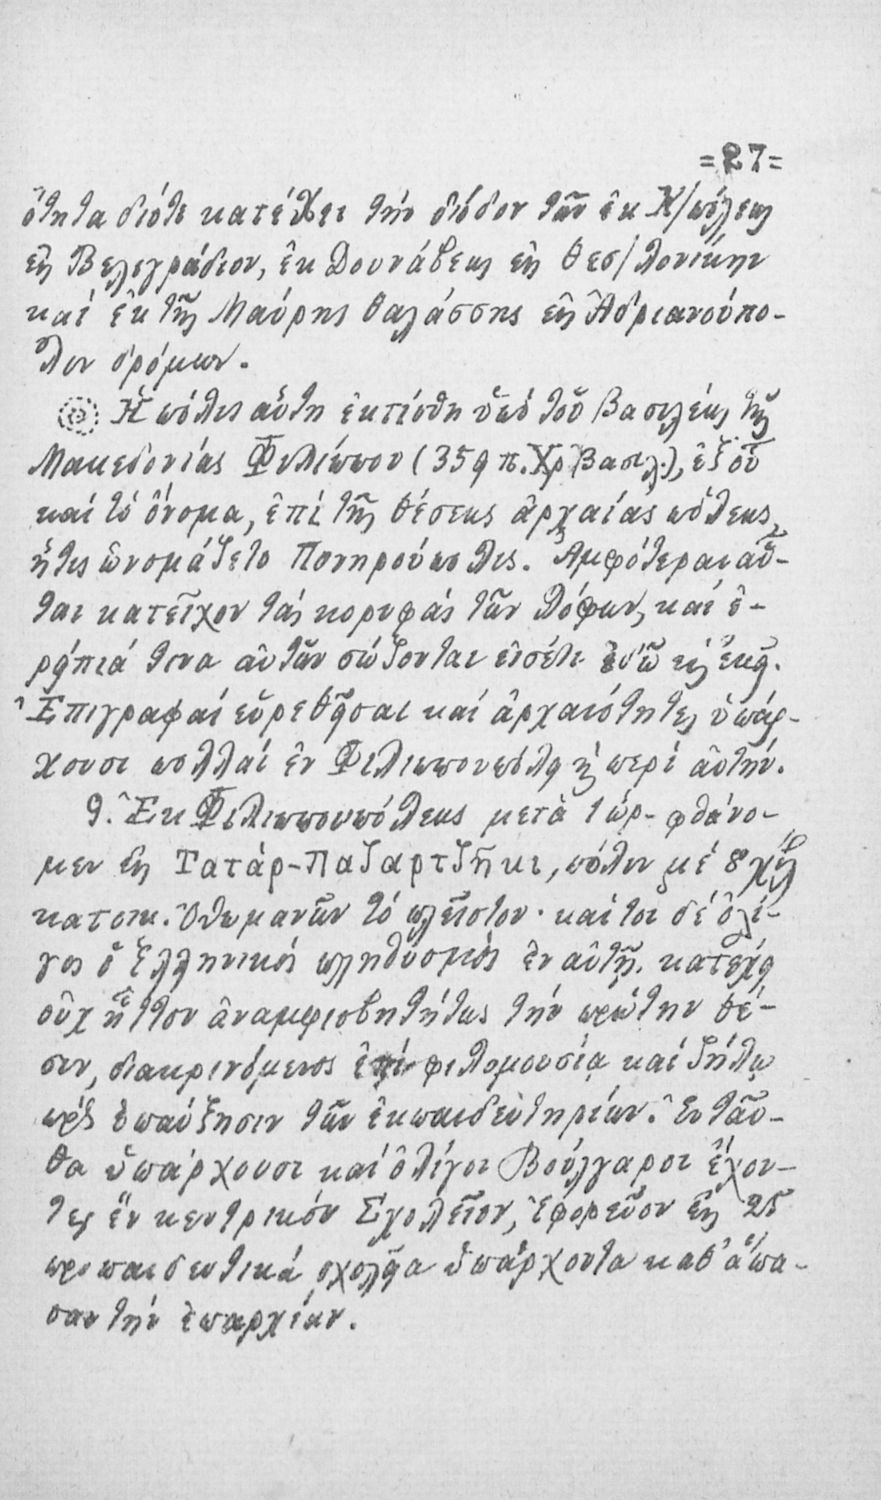 =27=
ότητα διότι κατέχει τήν δίοδον τῶν ἐκ Κ/πόλεως
εἰς Βελιγράδιον, ἐκ Δουνάβεως εἰς Θεσ/λονίκην
καί ἐκ τῆς Μαύρης θαλάσσης εἰς Ἀδριανούπο-
λιν δρόμων.
Ἡ πόλις αὕτη ἐκτίσθη ὑπό τοῦ Βασιλέως τῆς
Μακεδονίας Φιλίππου (359 π.Χρ Βασιλ.), ἐξ οὗ
καί τό ὄνομα, ἐπί τῆς θέσεως ἀρχαίας πόλεως,
ἥτις ὠνομάζετο Πονηρούπολις. Ἀμφότεραι αὗ-
ται κατεῖχον τάς κορυφάς τῶν λόφων, καί ἐ-
ρείπιά τινα αὐτῶν σώζονται εἰσέτι ἐν ᾧ εἰς ἐκεῖ.
Ἐπιγραφαί εὑρεθεῖσαι καί ἀρχαιότητες ὑπάρ-
χουσι πολλαί ἐν Φιλιππουπόλει ἤ περί αὐτήν.
9. Ἐκ Φιλιππουπόλεως μετὰ 1 ὡρ. φθάνο-
μεν εἰς Τατάρ-Παζαρτζῆκι, πόλιν μέ 8 χιλ
κατοικ. Ὀθωμανῶν τό πλεῖστον· καίτοι δέ ὀλί-
γος ὁ ἑλληνικός πληθυσμός ἐν αὐτῇ, κατέχει
οὐχ ἧττον ἀναμφισβητήτως τήν πρώτην θέ-
σιν, διακρινόμενος ἐπί φιλομουσίᾳ καί ζήλῳ
πρός ἐπαύξησιν τῶν ἐκπαιδευτηρίων. Ἐνταῦ-
θα ὑπάρχουσι καί ὀλίγοι Βούλγαροι ἔχον-
τες ἕν κεντρικόν Σχολεῖον, ἐφορεῦον εἰς 25
προπαιδευτικά σχολεῖα ὑπάρχοντα καθ' ἅπα-
σαν τήν ἐπαρχίαν.